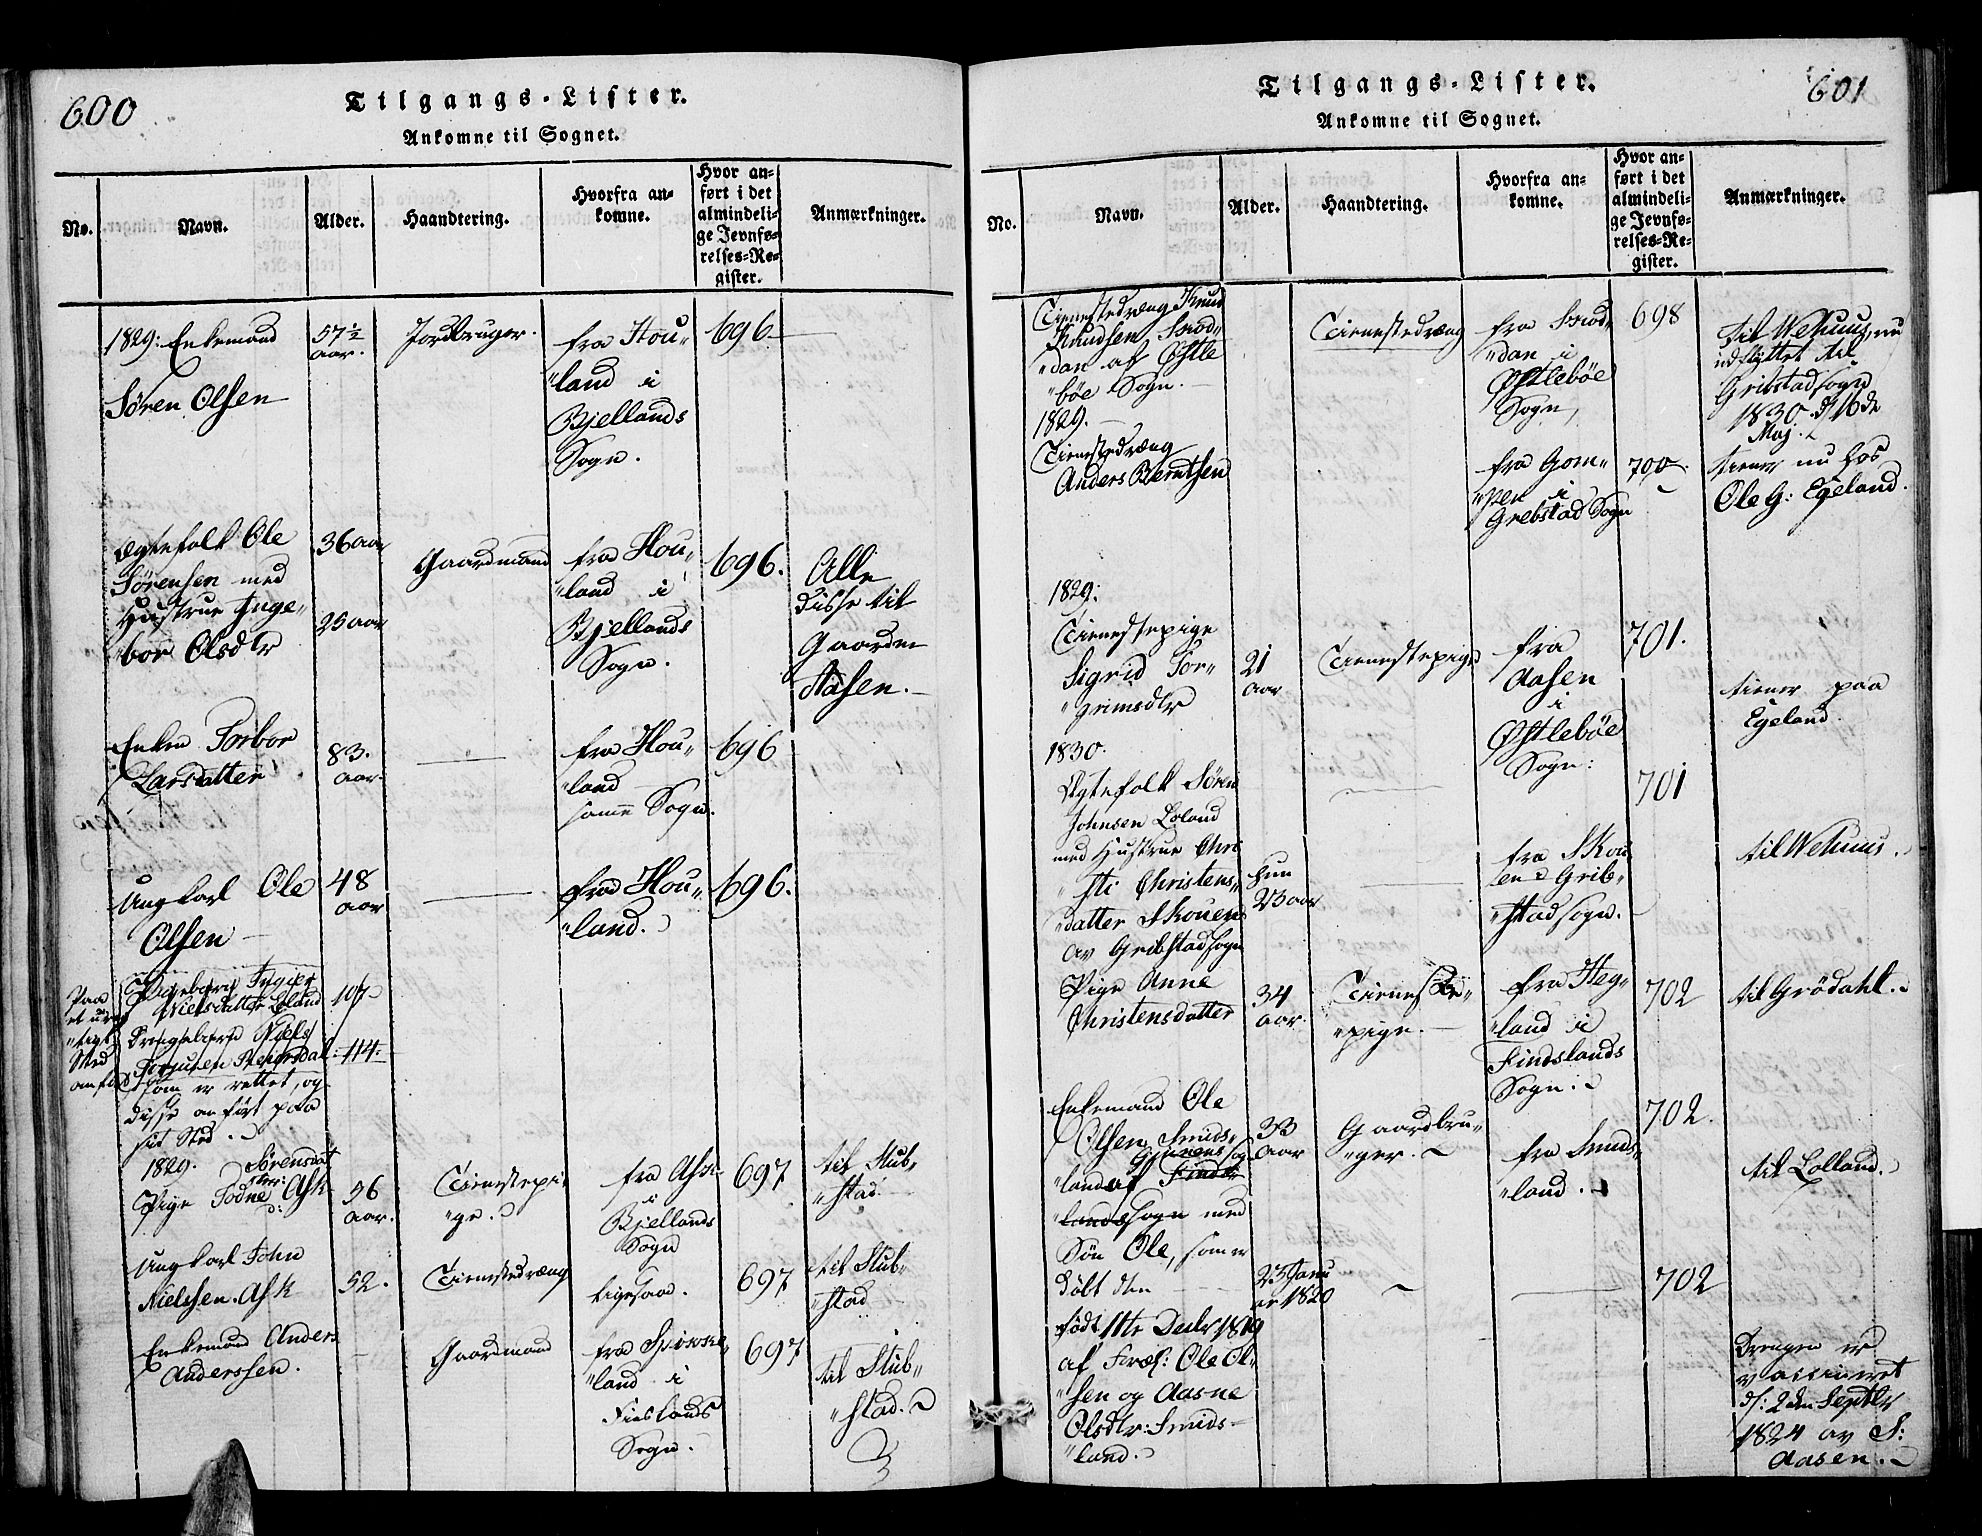 600
Tilgangs-Lister.
Ankomne til Sognet.
No.
Navn.
Alder.
Haandtering.
Hvorfra an-
komne.
Hvor an-
ført i det
almindeli-
ge Jevnfø-
relses-Re-
gister.
Anmærkninger.
1829: Enkemand
Sören Olsen
57½
aar.
Jordbruger.
fra Hou-
"land i
Bjellands
Sogn.
696
Ægtefolk Ole
Sørensen med
Hustrue Inge-
"bor Olsdtr
36 aar
25 aar
Gaardmand
fra Hou-
"land i
Bjellands
Sogn.
696.
Alle
disse til
Gaarden
Aasen.
Enken Torbor
Larsdatter
83.
aar.
fra Hou-
"land
samme Sogn.
696
Ungkarl Ole
Olsen
48
aar
fra Hou-
"land.
696.
Paa
et urig-
"tigt
Sted
anført
Pigebarn
Nielsdatter Loland
107
Drengebarn Niels
114.
som er rettet, og
disse anført paa
sit Sted.
1829. Sørensdat
Pige Todne Ask
56
aar.
Tienestepi-
"ge.
fra Ask
i
Bjellands
Sogn
697
til Stub-
"stad.
Ungkarl John
Nielsen Ask
52.
Tienestedræng
ligesaa.
697
til Stub-
"stad
Enkemand Anders
Anderssen.
Gaardmand
"land i
Sogn.
697
til Stub-
"stad.
601
Tilgangs-Lister.
Ankomne til Sognet.
No.
Navn.
Alder.
Haandtering.
Hvorfra an-
komne.
Hvor an-
ført i det
almindeli-
ge Jevnfø-
relses-Re-
gister.
Anmærkninger.
Tienestedræng Knud
Knudsen Skod-
"dan af Østle
"bøe Sogn.
Tienestedræng
fra Skod-
"dan i
Østlebøe
Sogn,
698
til Wehuus, nu
udflyttet til
Gribstadsogn
1830 d/16de
Maj.
1829.
Tienestedræng
Anders Berntsen
fra Gom-
"pen i
Grebstad Sogn
700.
tiener nu hos
Ole G: Egeland.
1829:
Tienestepige
Sigrid Tor-
"grimsdtr
21
aar
Tienestepige
fra
Aasen
i
Østlebøe
Sogn:
701.
tiener paa
Egeland.
1830.
Ægtefolk Søren
Johnsen Loland
med Hustrue Chri
"sti Christens-
"datter Skouen
av Gribstadsogn
hun
23 aar
fra Skou
"en i Grib-
"stadsogn.
701
til Wehuus.
Pige Anne
Christensdatter
34
aar.
Tieneste-
"pige.
fra Heg-
"land i
Findslands
Sogn.
702
til Grödahl.
Enkemand Ole
Olsen Smids-
"land af Find
"lands sogn med
Sön Ole, som er
döbt den
33
aar
23 Janu
ar 1820
Gaardbru-
"ger.
fra Smids-
"land.
702.
til Lolland.
702
født 11te Decbr 1819
af Foræl: Ole Ol-
"sen og Aasne
Olsdtr: Smids-
"land.
Drengen er
vaccineret
d/: 2den Septbr
1824 av S:
Aasen.